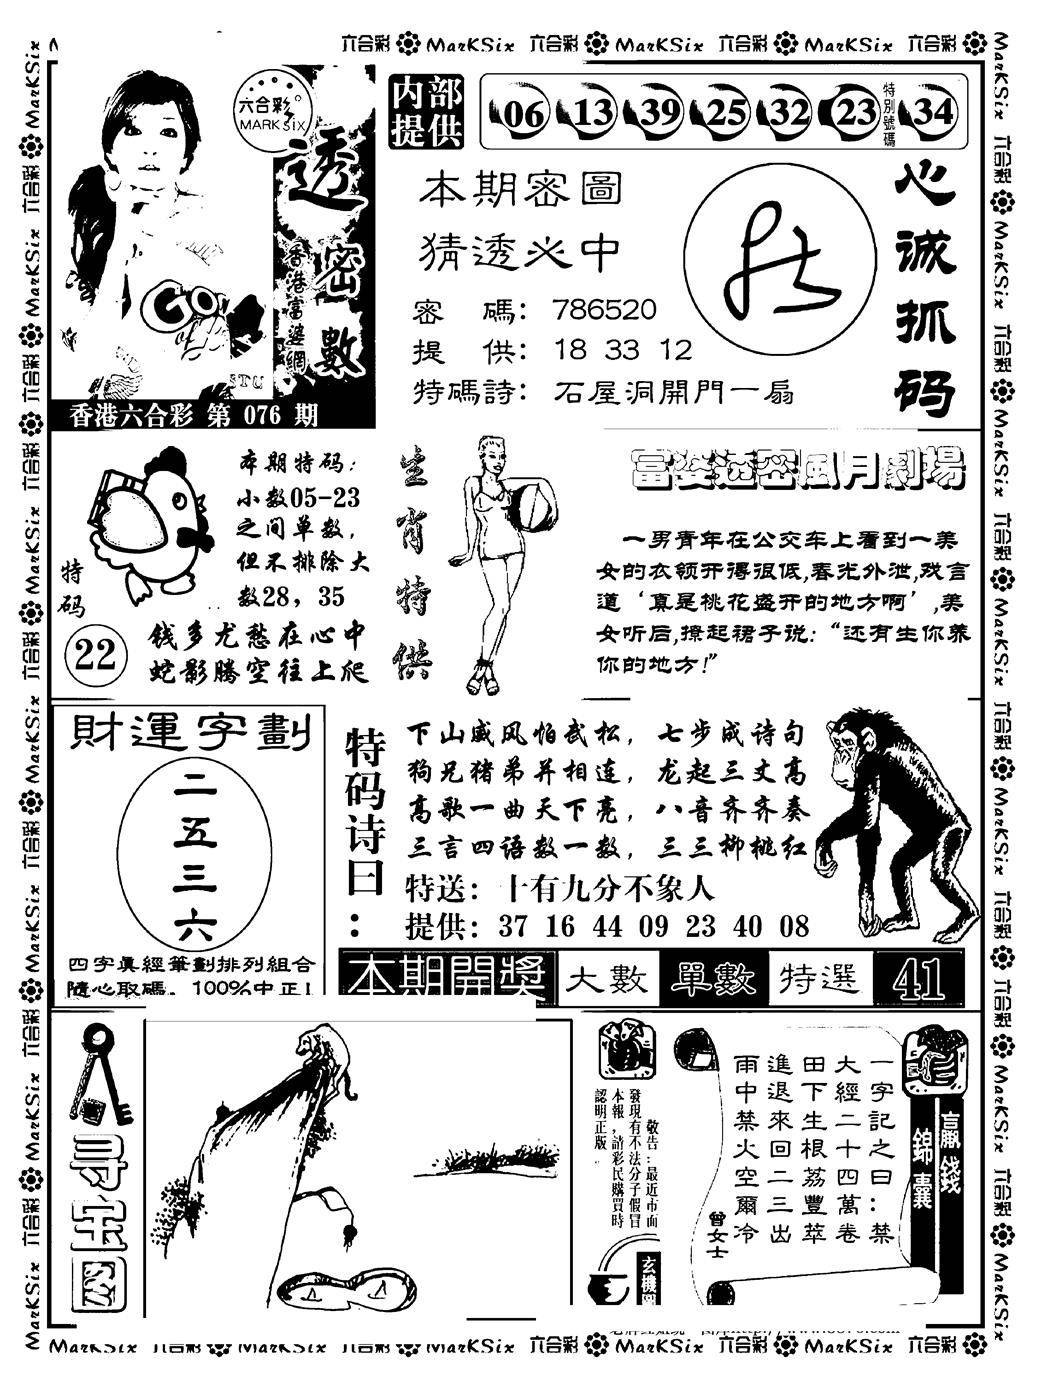 六合彩 MarKSix 六合彩 MarKSix 六合彩 MarKSix 六合彩
六合彩
MARK SIX
透密數
香港富婆網
香港六合彩 第 076 期
内部
提供
06 13 39 25 32 23 特別號碼 34
本期密圖
猜透必中
密 碼: 786520
提 供: 18 33 12
特碼詩: 石屋洞開門一扇
心诚抓码
特码
22
本期特码:
小数05-23
之间单数,
但不排除大
数28, 35
钱多尤愁在心中
蛇影腾空往上爬
生肖特供
富婆透密風月劇場
一男青年在公交车上看到一美
女的衣领开得很低,春光外泄,戏言
道‘真是桃花盛开的地方啊’,美
女听后,撩起裙子说:“还有生你养
你的地方!”
財運字劃
二
五
三
六
四字眞經筆劃排列組合
隨心取碼。100%中正!
特码诗曰:
下山威风怕武松, 七步成诗句
狗兄猪弟并相连, 龙起三丈高
高歌一曲天下亮, 八音齐齐奏
三言四语数一数, 三三柳桃红
特送: 十有九分不象人
提供: 37 16 44 09 23 40 08
本期開獎 大數 單數 特選 41
寻宝图
敬告:最近市面
發現有不法分子假冒
本報,請彩民購買時
認明正版。
玄機
贏錢
錦囊
一字記之曰:禁
大經二十四萬卷
田下生根荔豐萃
進退來回二三出
雨中禁火空爾冷
曾女士
MarKSix 六合彩 MarKSix 六合彩 MarKSix 六合彩